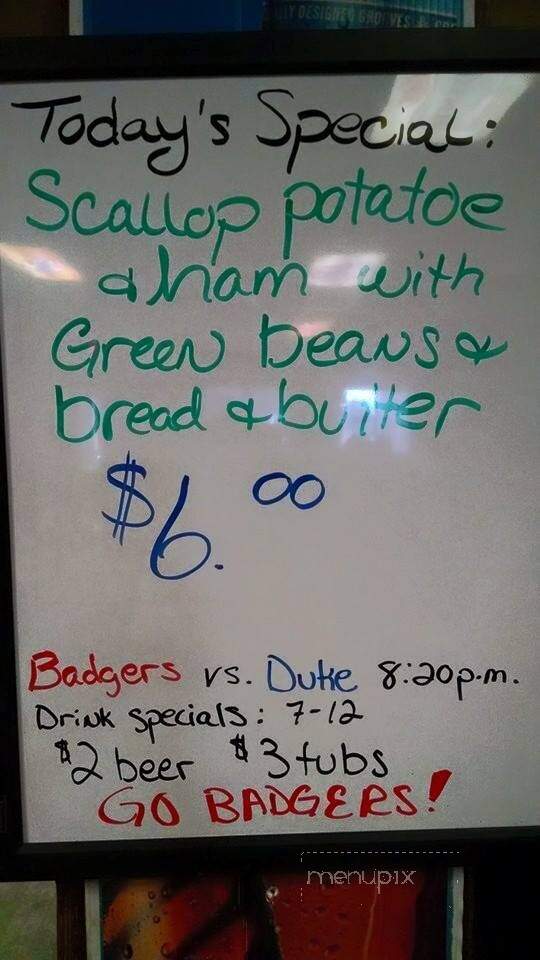 LY DESIGNED GROOVES &
Today's Special:
Scallop potatoe
& ham with
Green beans &
bread & butter
$6.00
Badgers vs. Duke 8:20p.m.
Drink specials: 7-12
$2 beer $3 tubs
GO BADGERS!
menupix